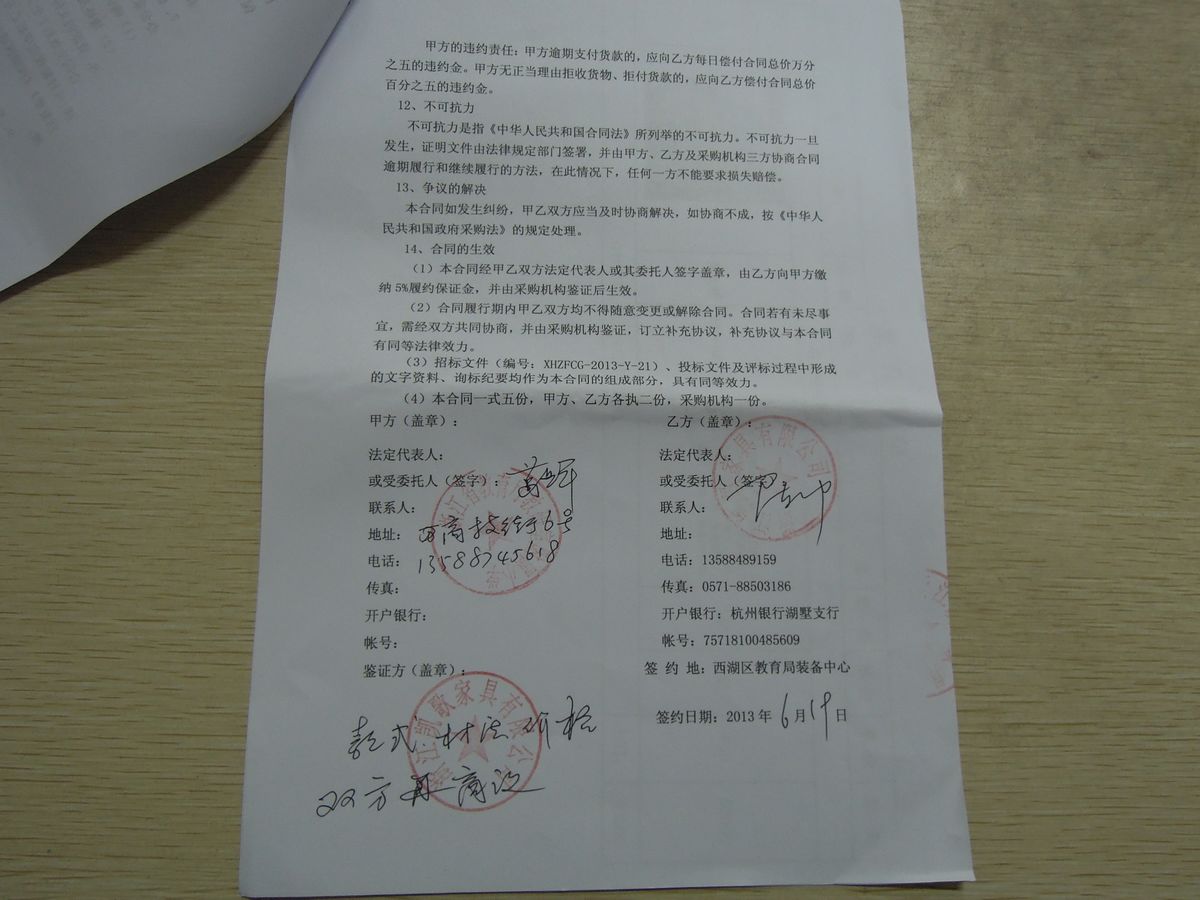 甲方的违约责任：甲方逾期支付货款的，应向乙方每日偿付合同总价万分
之五的违约金。甲方无正当理由拒收货物、拒付货款的，应向乙方偿付合同总价
百分之五的违约金。
12、不可抗力
不可抗力是指《中华人民共和国合同法》所列举的不可抗力。不可抗力一旦
发生，证明文件由法律规定部门签署，并由甲方、乙方及采购机构三方协商合同
逾期履行和继续履行的方法，在此情况下，任何一方不能要求损失赔偿。
13、争议的解决
本合同如发生纠纷，甲乙双方应当及时协商解决，如协商不成，按《中华人
民共和国政府采购法》的规定处理。
14、合同的生效
（1）本合同经甲乙双方法定代表人或其委托人签字盖章，由乙方向甲方缴
纳5%履约保证金，并由采购机构鉴证后生效。
（2）合同履行期内甲乙双方均不得随意变更或解除合同。合同若有未尽事
宜，需经双方共同协商，并由采购机构鉴证，订立补充协议，补充协议与本合同
有同等法律效力。
（3）招标文件（编号：XHZFCG-2013-Y-21）、投标文件及评标过程中形成
的文字资料、询标纪要均作为本合同的组成部分，具有同等效力。
（4）本合同一式五份，甲方、乙方各执二份，采购机构一份。
甲方（盖章）：
乙方（盖章）：
法定代表人：
法定代表人：
或受委托人（签字）：
或受委托人（签字）
联系人：
联系人：
地址： 6号
地址：
电话：13588745618
电话：13588489159
传真：
传真：0571-88503186
开户银行：
开户银行：杭州银行湖墅支行
帐号：
帐号：75718100485609
鉴证方（盖章）：
签 约 地：西湖区教育局装备中心
签约日期：2013年6月19日
浙江凯歌家具有限公
家具有限公司
款式 材 价格
双方再商议